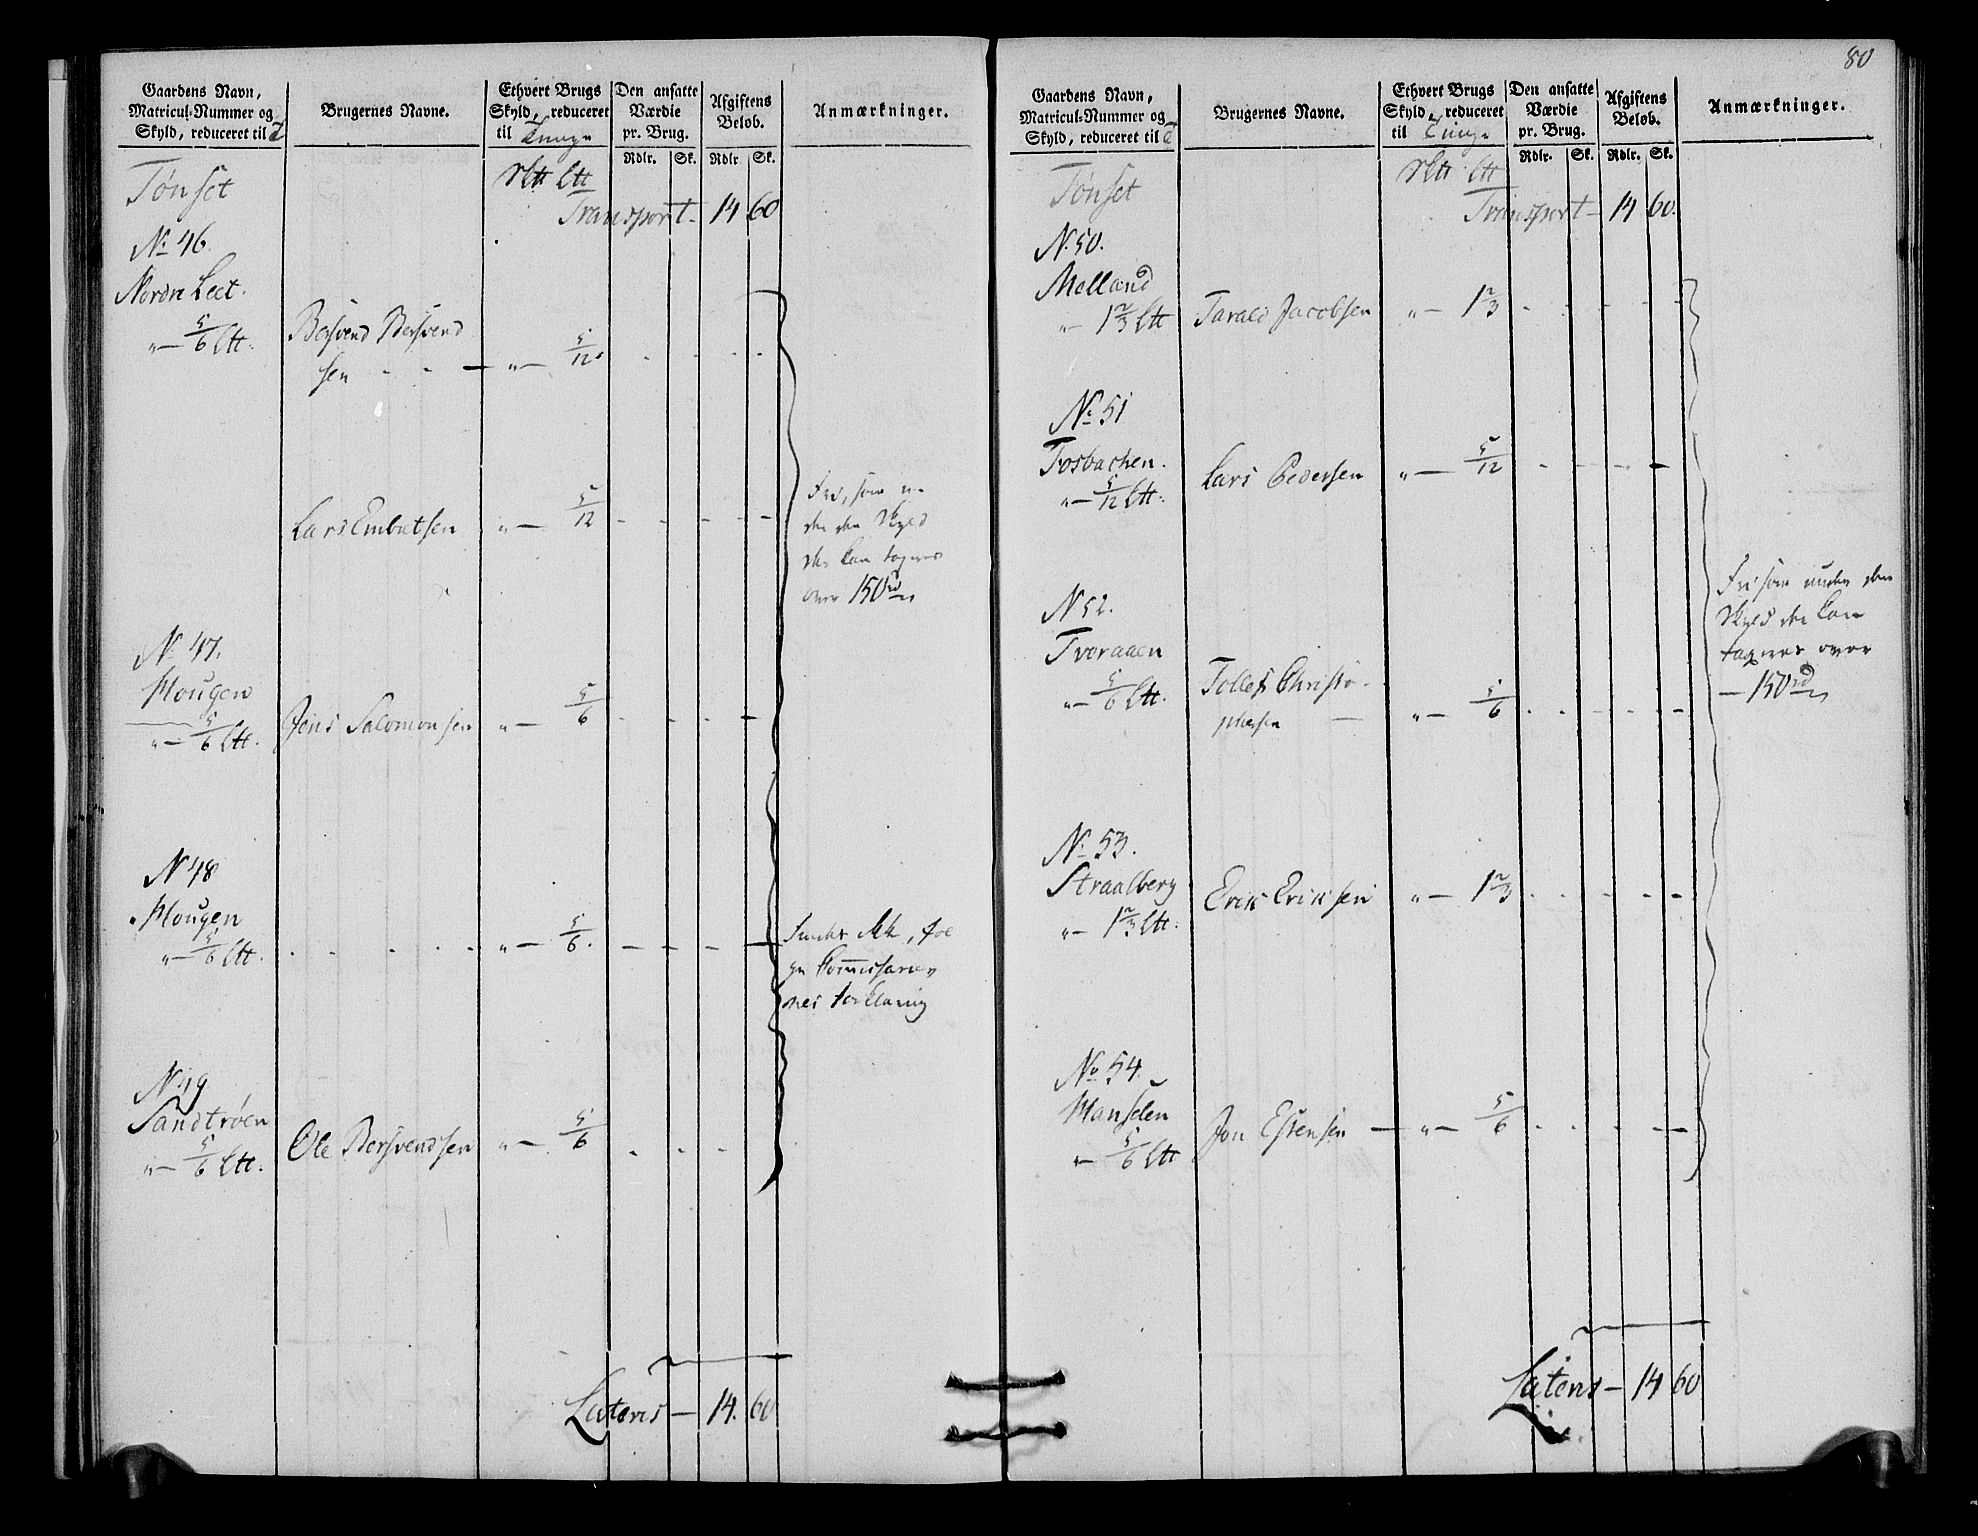 80
Gaardens Navn,
Matricul-Nummer og
Skyld, reduceret til
Brugernes Navne.
Ethvert Brugs
Skyld, reduceret
til Tunge
Den ansatte
Værdie
pr. Brug.
Rdlr. Sk.
Afgiftens
Beløb.
Rdlr Sk.
Anmærkninger.
Tønset
Transport - 14 60
No 46.
Nordre Leet.
"— 5/6 Ltt.
Bersvend Bersvend
sen - - — "— 5/12.
Lars Embretsen "— 5/12 - - - -
Fri, som un-
der den Skyld
der kan taxeres
over 150 rd
No 47.
Hougen
"— 5/6 Ltt.
Jens Salomonsen "— 5/6 - - - -
No 48
Hougen
"— 5/6 Ltt.
"— 5/6. - - - -
følge
Commissærer
nes forklaring
No 49
Sandtrøen
"— 5/6 Ltt.
Ole Bersvendsen "— 5/6 - - -
Lateris — 14. 60
Gaardens Navn,
Matricul-Nummer og
Skyld, reduceret til
Brugernes Navne.
Ethvert Brugs
Skyld, reduceret
til Tunge
Den ansatte
Værdie
pr. Brug.
Rdlr. Sk.
Afgiftens
Beløb.
Rdlr. Sk.
Anmærkninger.
Tønset
Transport - 14 60.
N. 50.
Melland
"— 1 2/3 Ltt
Tarald Jacobsen "— 1 2/3 - - - -
No 51
Fosbachen.
"— 5/12 Ltt.
Lars Pedersen "— 5/12 - - - -
N 52.
Tveraaen
"— 5/6 Ltt.
Tollef Christo-
phersen — "— 5/6 - - - -
Fri som under den
Skyld der kan
taxeres over
— 150 rd
No 53.
Straalberg
"— 1 2/3 Ltt.
Erik Eriksen "— 1 2/3 - - - -
No 54.
Hanseen
"— 5/6 Ltt
Jon Estensen — "— 5/6 - - - -
Lateris — 14 60